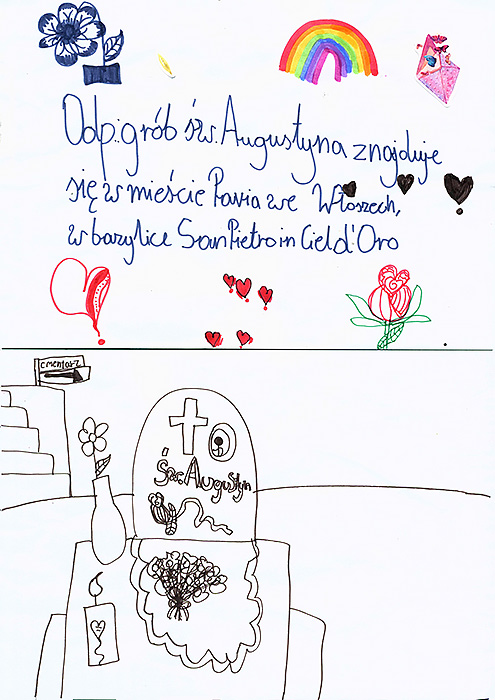 Odp: grób św. Augustyna znajduje
się w mieście Pavia we Włoszech,
w bazylice San Pietro in Ciel d'Oro
cmentarz
Św. Augustyn